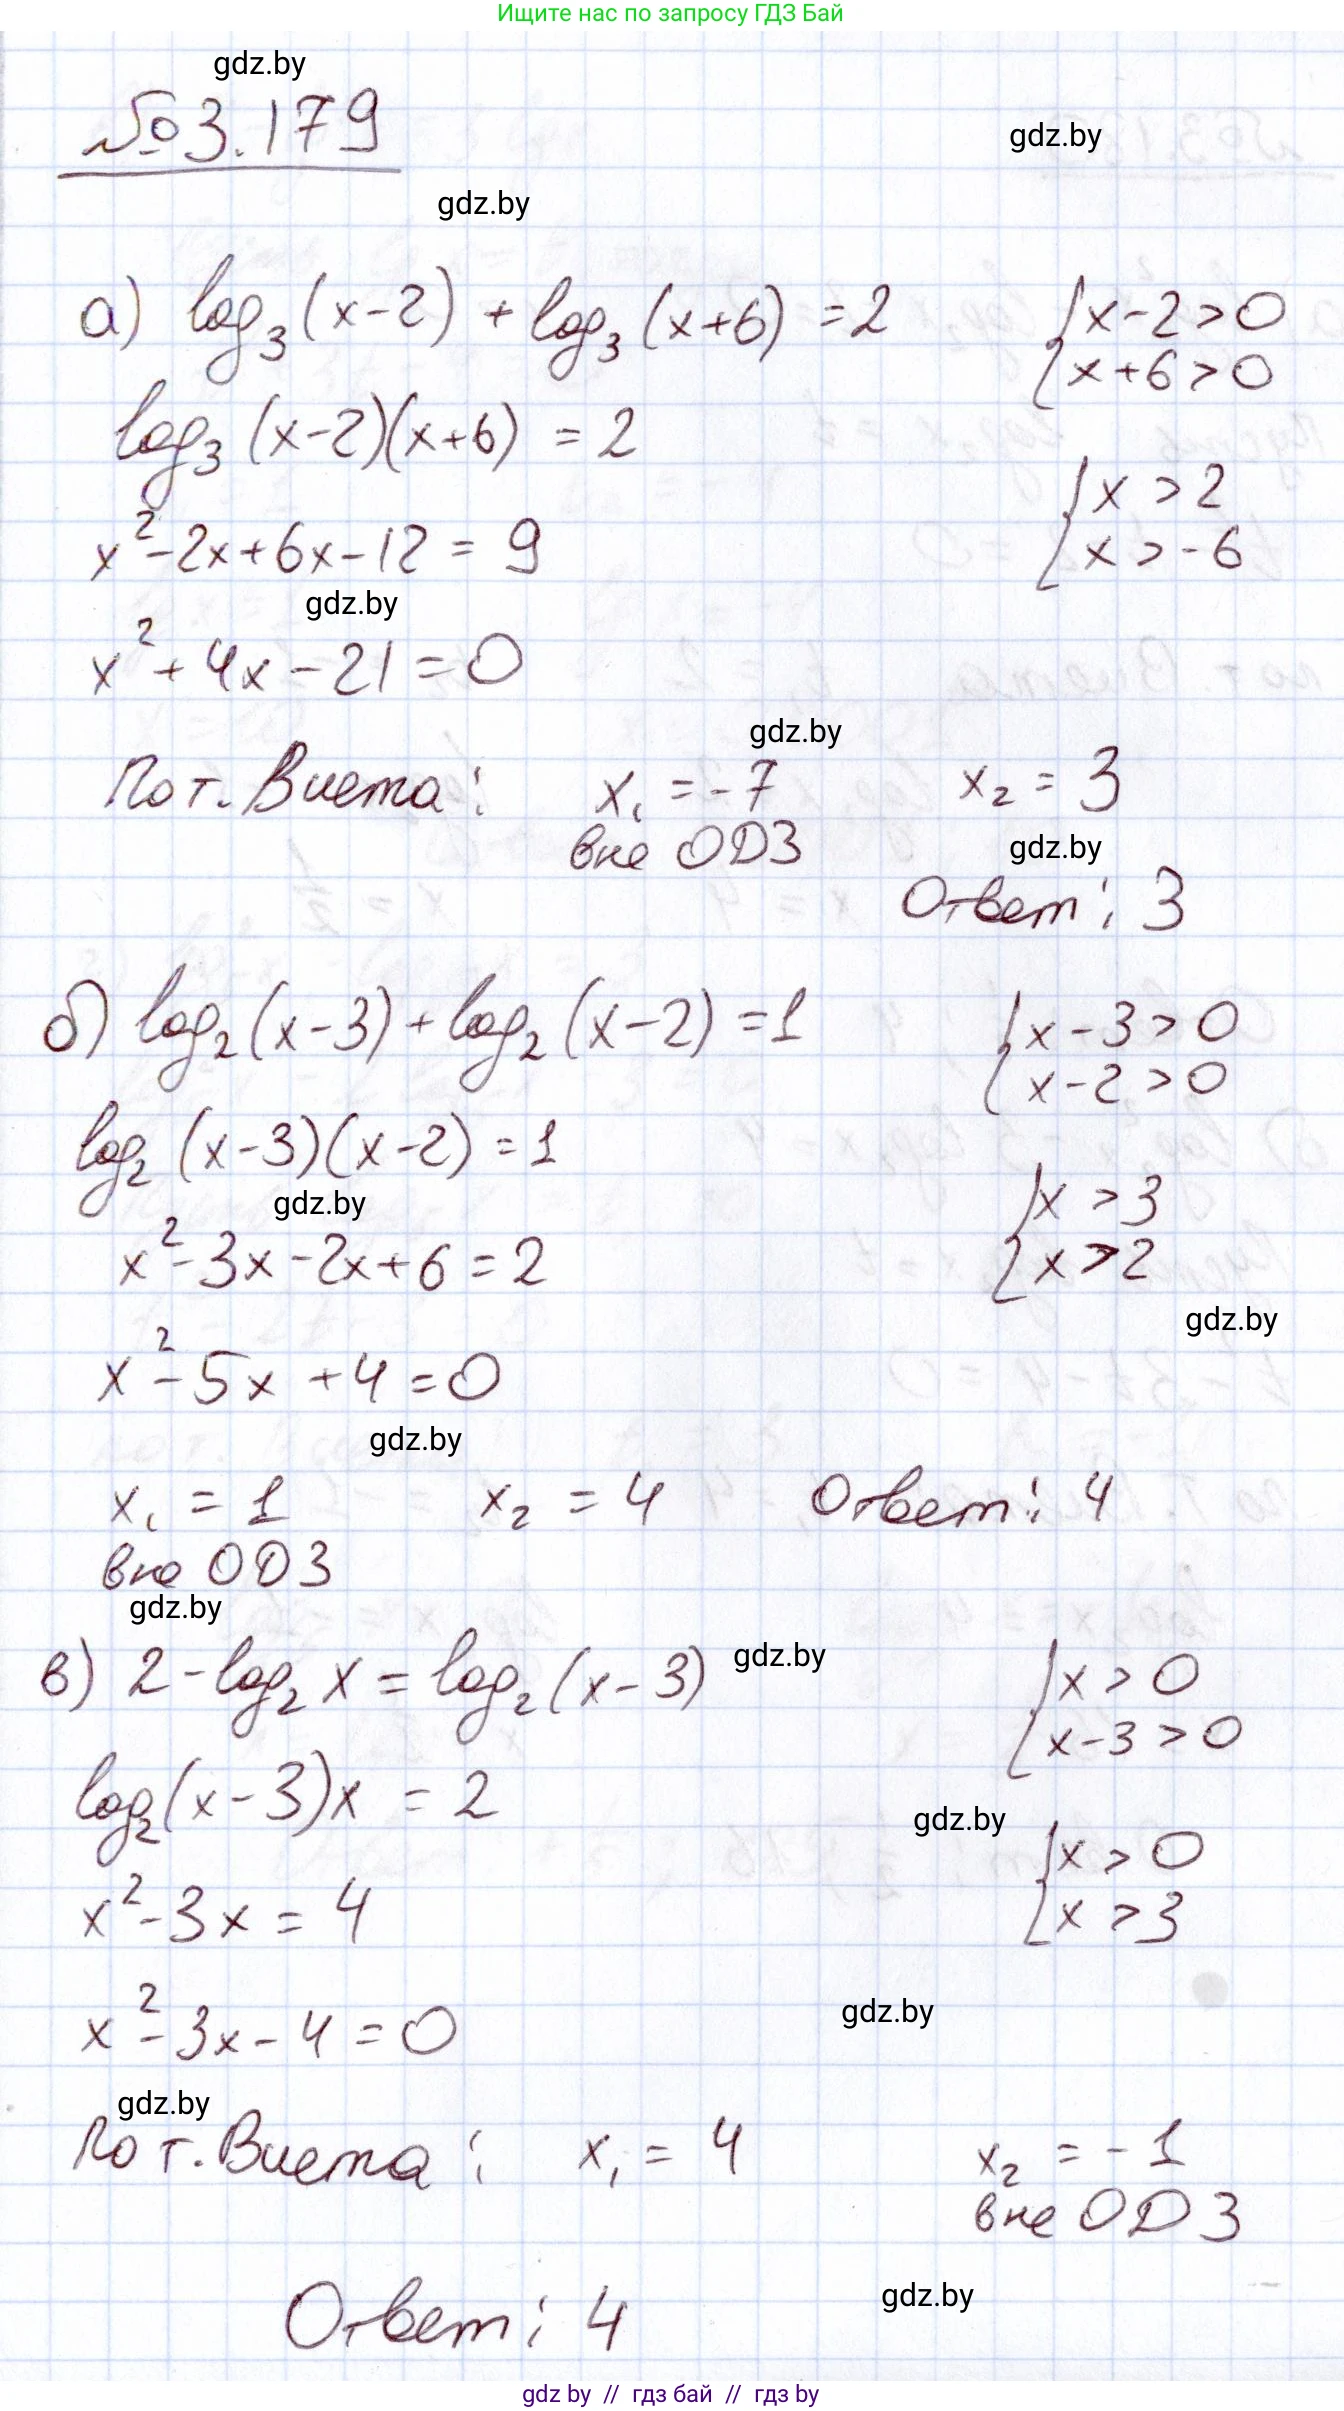 Ищите нас по запросу ГДЗ Бай
gdz.by
№3.179
gdz.by
gdz.by
а) log₃(x-2) + log₃(x+6) = 2
{x-2>0
{x+6>0
log₃(x-2)(x+6) = 2
{x>2
{x>-6
x²-2x+6x-12 = 9
gdz.by
x²+4x-21=0
gdz.by
По т. Виета: x₁ = -7 x₂ = 3
вне ОДЗ
gdz.by
Ответ: 3
б) log₂(x-3)+log₂(x-2) = 1
{x-3>0
{x-2>0
log₂(x-3)(x-2) = 1
{x>3
{x>2
gdz.by
x²-3x-2x+6=2
gdz.by
x²-5x+4=0
gdz.by
x₁ = 1 x₂ = 4 Ответ: 4
вне ОДЗ
gdz.by
в) 2-log₂x = log₂(x-3)
gdz.by
{x>0
{x-3>0
log₂(x-3)x = 2
gdz.by
{x>0
{x>3
x²-3x = 4
gdz.by
x²-3x-4=0
gdz.by
По т. Виета: x₁ = 4 x₂ = -1
вне ОДЗ
gdz.by
Ответ: 4
gdz by // гдз бай // гдз by